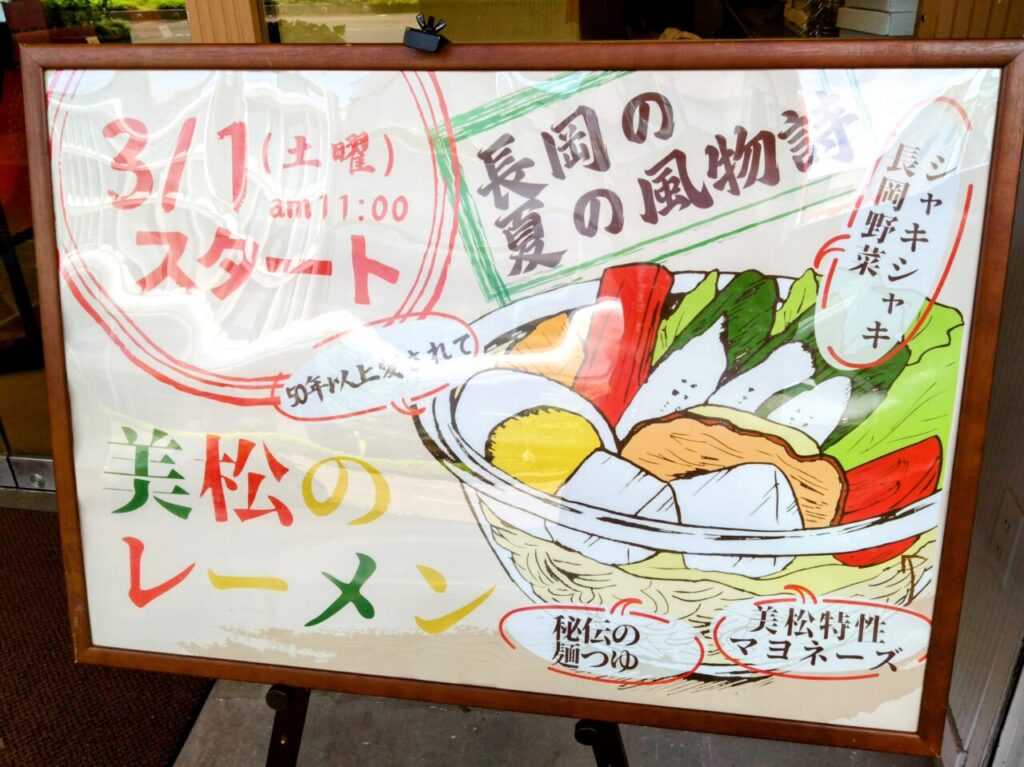 3/1(土曜)
am11:00
スタート
長岡の
夏の風物詩
シャキシャキ
長岡野菜
50年以上愛されて
美松の
レーメン
秘伝の
麺つゆ
美松特性
マヨネーズ